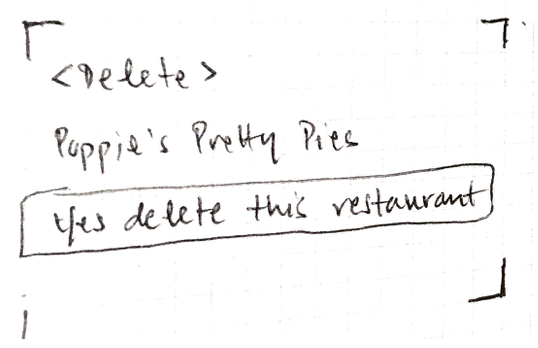 <Delete>
Poppie's Pretty Pies
Yes delete this restaurant